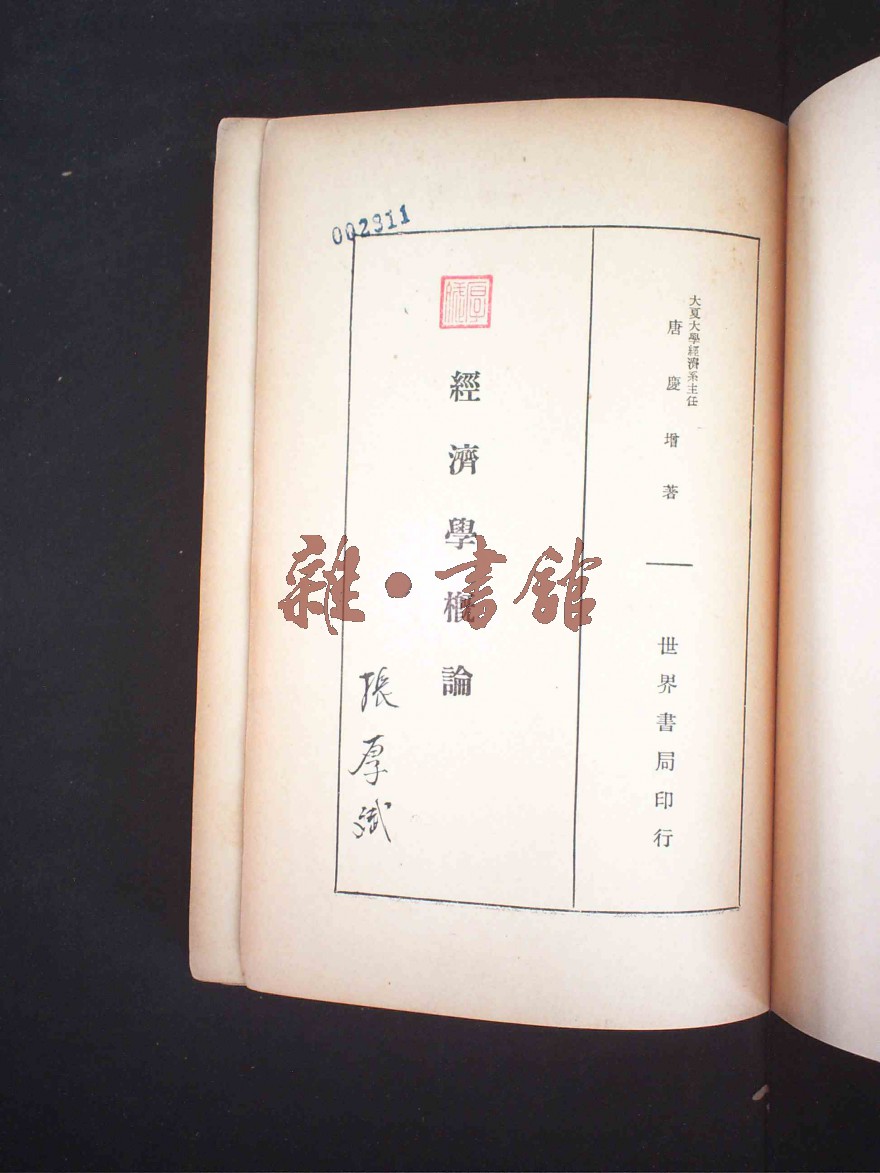 002911
大夏大學經濟系主任
唐慶增著
世界書局印行
經濟學概論
張厚斌
雜·書館